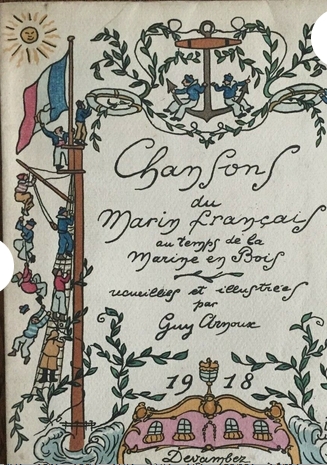 Chansons
du
Marin français
au temps de la
Marine en Bois
recueillies et illustrées
par
Guy Arnoux
1918
Devambez